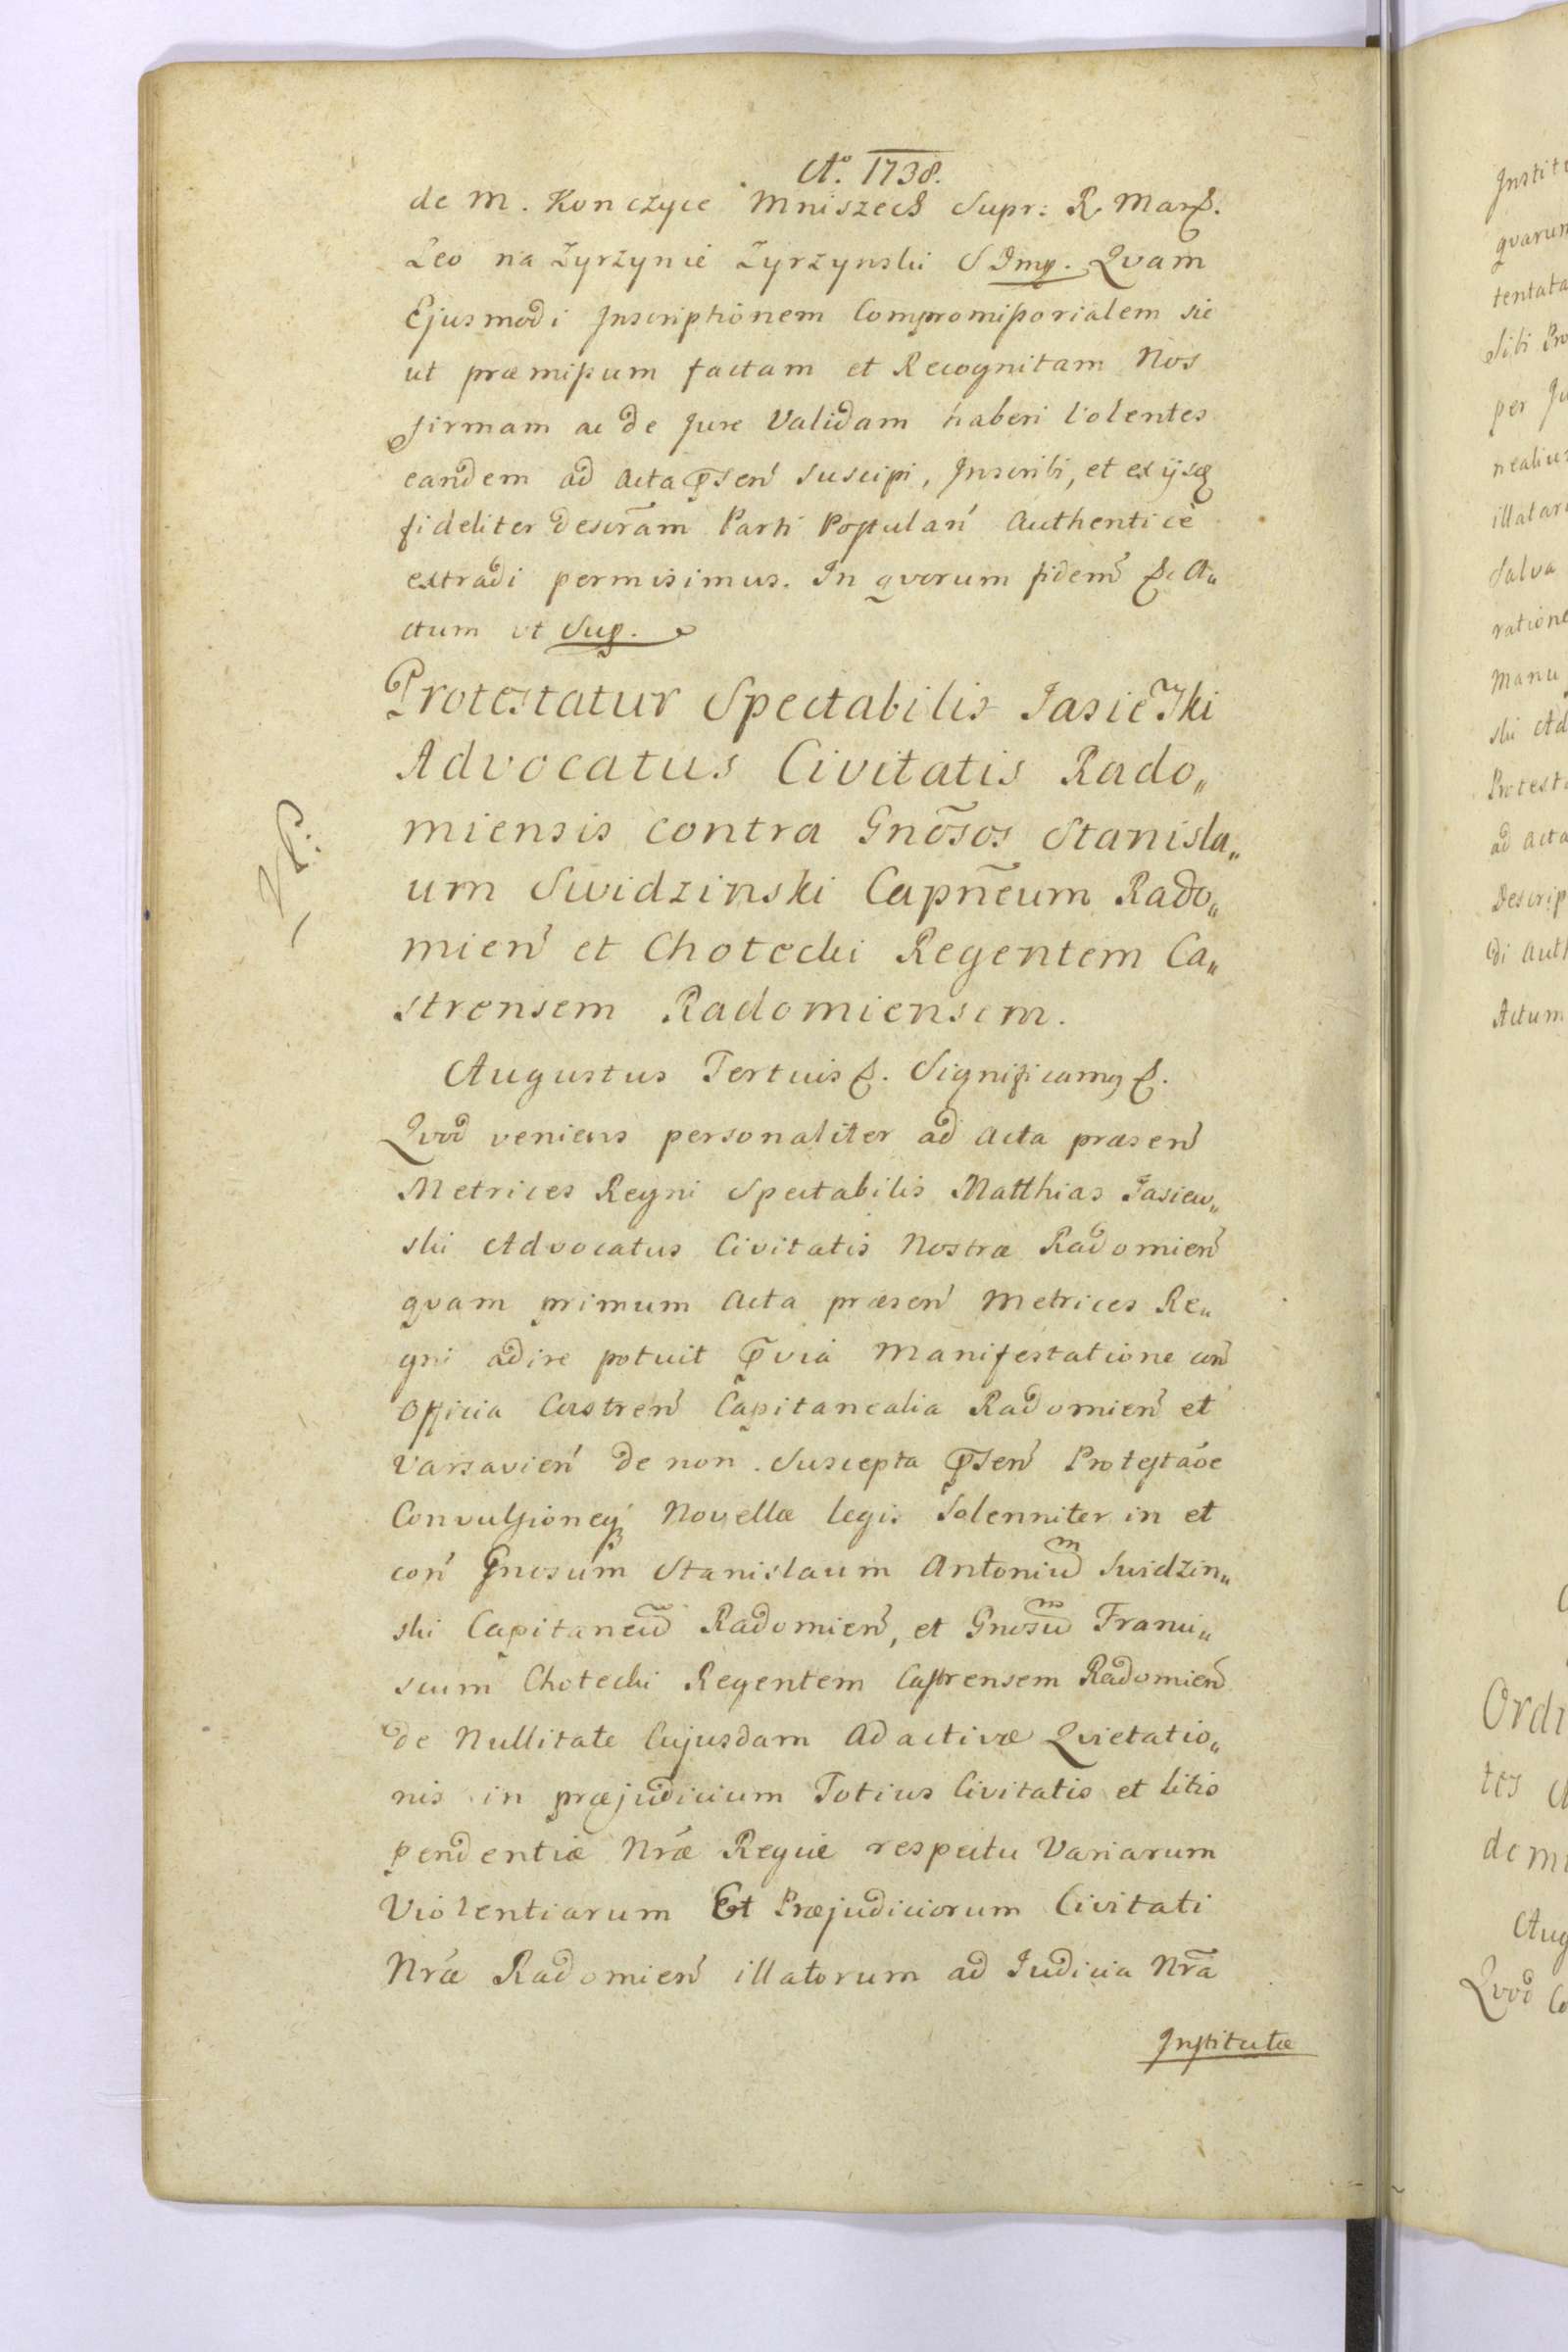 Aº. 1738.
de M. Konczyce Mniszech Supr: R. Mar&.
Leo na Zyrzynie Zyrzynski S Jmp. Qvam
Ejusmodi Inscriptionem Compromißorialem sic
ut præmißum factam et Recognitam Nos
firmam ac de Jure Validam haberi Volentes
eandem ad Acta p̃sen̄ suscipi, Inscribi, et ex ijsq
fideliter descr̃am Parti Postulan̄ Authenticè
extradi permisimus. In qvorum fidem &. A„
ctum ut Sup.
Protestatur Spectabilis Jasieski
Advocatus Civitatis Rado„
miensis contra Gnõsos Stanisla„
um Swidzinski Capñeum Rado„
mien̄ et Chotecki Regentem Ca„
strensem Radomiensem.
Augustus Tertius &. Significamq &.
Qvod veniens personaliter ad Acta præsen̄
Metrices Regni Spectabilis Matthias Jasiew„
ski Advocatus Civitatis Nostræ Radomien̄
qvam primum Acta præsen̄ Metrices Re„
gni adire potuit p̃viâ Manifestatione con̄
Officia Castren̄ Capitanealia Radomien̄ et
Varsavien̄ de non Suscepta p̃sen̄ Protestãoe
Convulsioneq Novellæ legis Solenniter in et
con̄ Gnosum Stanislaum Antoniūm Swidzin„
ski Capitaneūm Radomien̄, et Gnosūm Franci„
scum Chotecki Regentem Castrensem Radomien̄
de Nullitate Cujusdam Ad activæ Qvietatio„
nis in præjudicium Totius Civitatis et litis
pendentiæ Nræ Regiæ respectu Variarum
Violentiarum Et Præjudiciorum Civitati
Nræ Radomien̄ illatorum ad Judicia Nr̃a
Institutæ
quarum
tentata
per
illatar
Salva
ratione
manu
ad Acta
Descrip
Actum